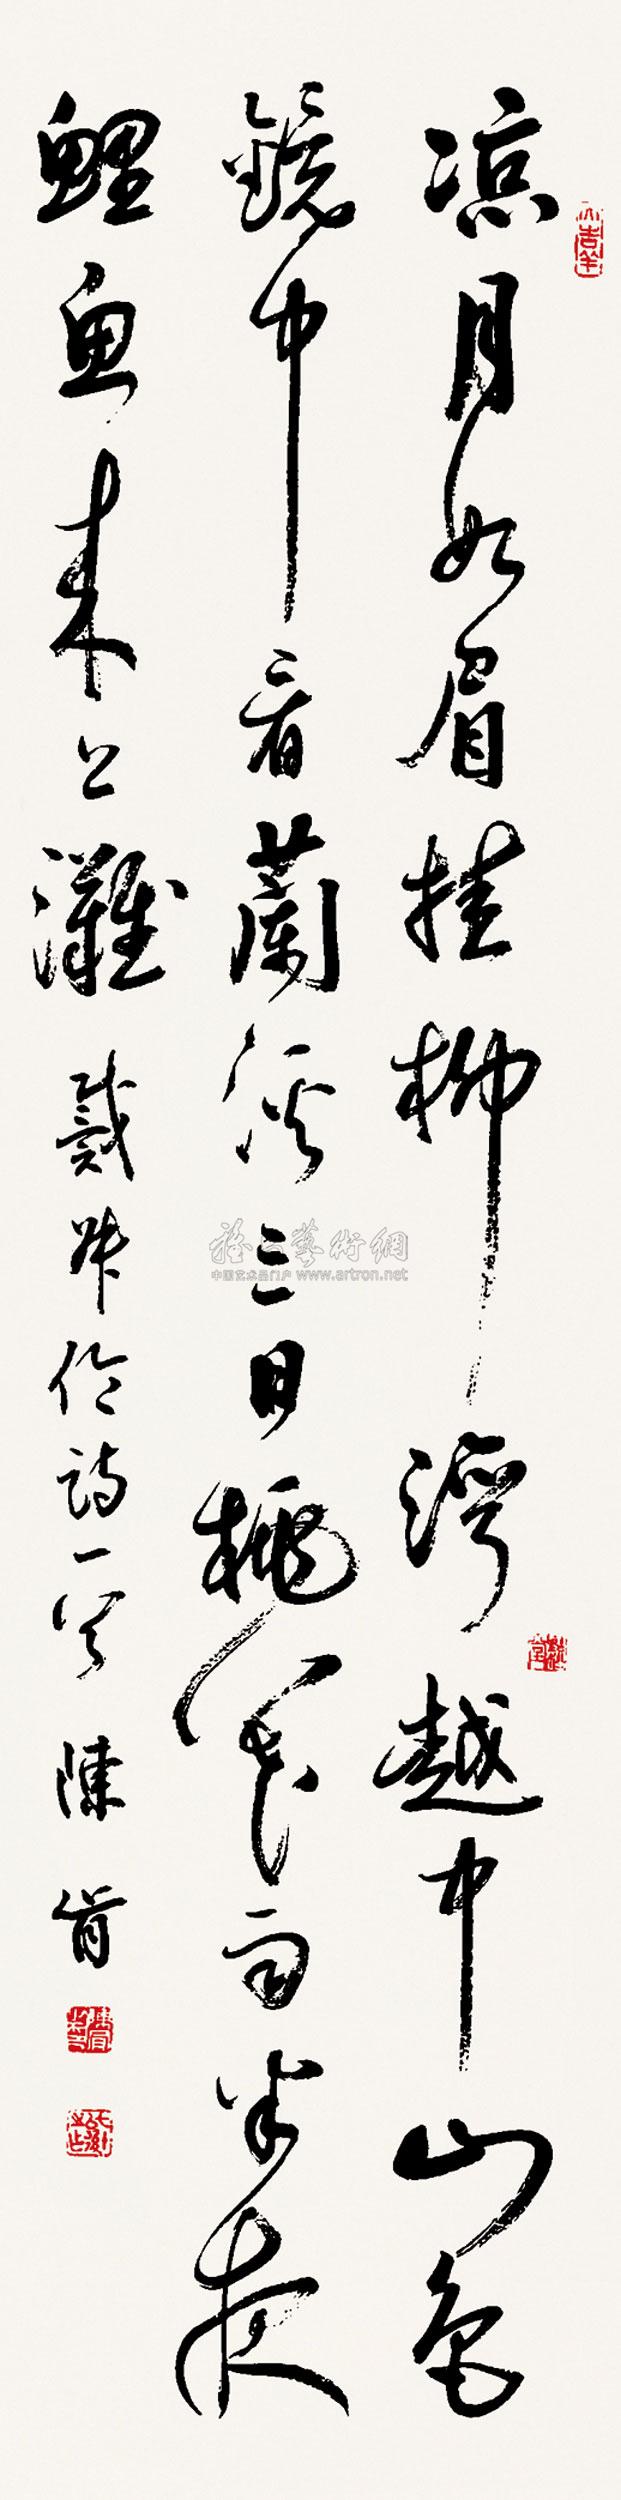 凉月如眉挂柳湾越中山色
镜中看兰溪三日桃花雨半夜
鲤鱼来上滩 戴叔伦诗一首 陈
大吉羊
雅昌艺術網
中国艺术品门户 www.artron.net